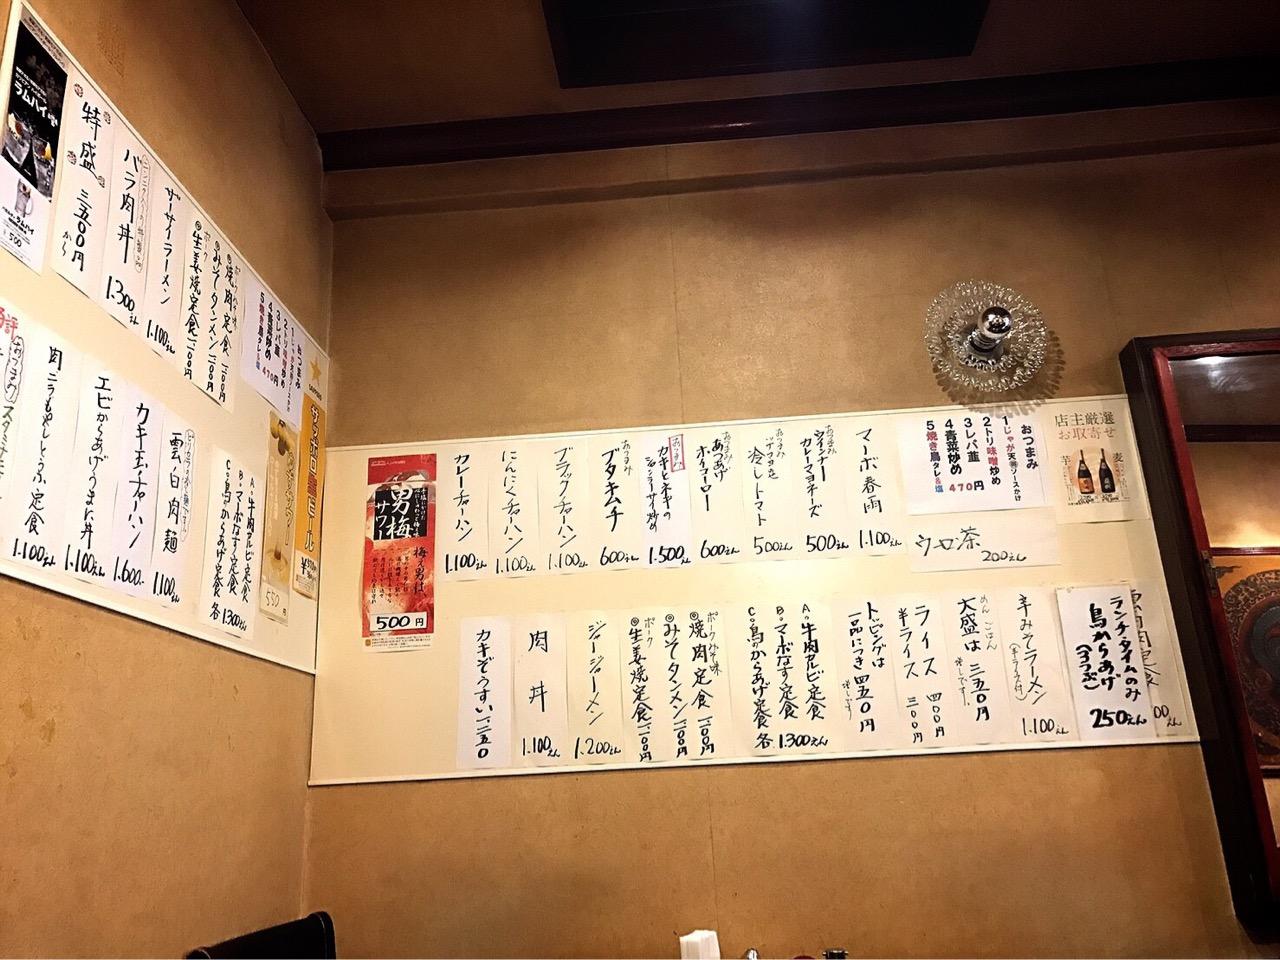 ラムハイ
ラムハイ
500
特盛
三五〇円から
バラ肉丼
1.300えん
ザーサイラーメン
1.100えん
◎焼肉定食
◎みそタンメン
ポーク
◎生姜焼定食
おつまみ
1じゃが天㊕ソースかけ
2トリ味噌炒め
3レバ韮
4青菜炒め
5焼き鳥タレ&塩
470円
サッポロ生ビール
好評
肉ニラもやしとうふ定食
1.100えん
エビからあげうまに丼
1.100えん
カキ玉チャーハン
1.600.
雲白肉麺
1100えん
A◦牛肉カルビ定食
B◦マーボなす定食
C◦鳥のからあげ定食
各1.300えん
550円
男梅サワー
梅の男技。
500円
カレーチャーハン
1.100えん
にんにくチャーハン
1.100えん
ブラックチャーハン
1.100えん
おつまみ
ブタキムチ
600えん
おつまみ
カキとネギの
ジャンラーサイ炒め
1.500えん
おつまみ
あつあげ
ホイコーロー
600えん
おつまみ
冷しトマト
500えん
おつまみ
ウインナー
カレーマヨネーズ
500えん
マーボ春雨
1.100えん
おつまみ
1じゃが天㊕ソースかけ
2トリ味噌炒め
3レバ韮
4青菜炒め
5焼き鳥タレ&塩
470円
ウーロン茶
200えん
店主厳選
お取寄せ
麦
芋
カキぞうすい
一二五〇
肉丼
1.100えん
ジャージャーメン
1.200えん
ポークみそ味
◎焼肉定食 一一〇〇円
◎みそタンメン 一一〇〇円
ポーク
◎生姜焼定食 一一〇〇円
A◦牛肉カルビ定食
B◦マーボなす定食
C◦鳥のからあげ定食
各1.300えん
トッピングは
一品につき四五〇円
増しです
ライス 四〇〇円
半ライス 三〇〇円
めん ごはん
大盛は三五〇円
増しです。
辛みそラーメン
(半ライス付)
1.100えん
ランチタイムのみ
鳥からあげ
(3コつき)
250えん